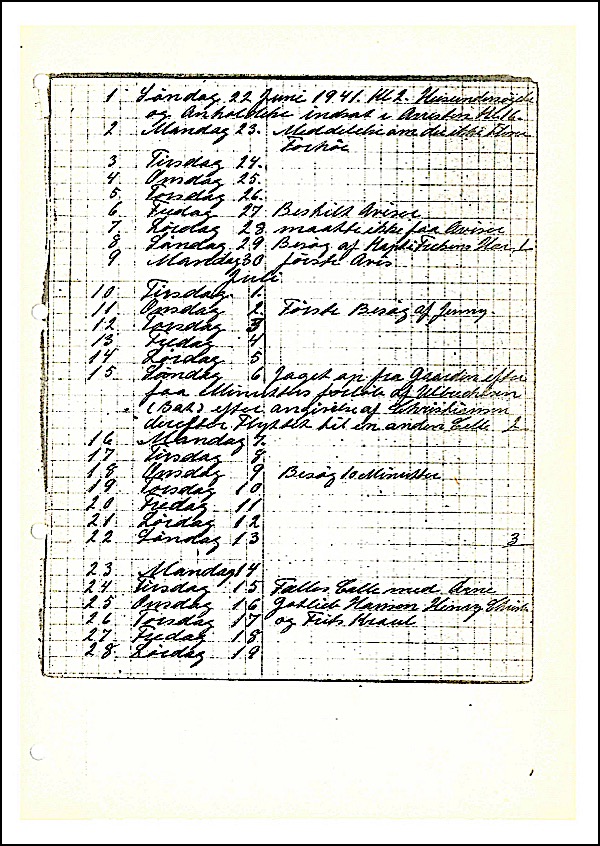 1 Søndag 22 Juni 1941. Kl 2. Husundersøgelse
og Anholdelse indsat i Arresten Kl 16.
2 Mandag 23. Meddelelse om
Forhør
3 Tirsdag 24.
4 Onsdag 25.
5. Torsdag 26.
6 Fredag 27 Bestilt Aviser
7 Lørdag 28 maatte ikke faa Aviser
8 Søndag 29 Besøg af 1
9 Mandag 30 første Avis
Juli
10 Tirsdag. 1.
11 Onsdag 2 Første Besøg af Jenny.
12 Torsdag 3
13 Fredag 4
14 Lørdag 5
15 Søndag 6 Jaget op fra Gaarden efter
faa Minutters forløb af
(Bat.) efter angivelse af Christiansen
derefter Flyttet til en anden Celle 2
16 Mandag 7.
17 Tirsdag 8
18 Onsdag 9 Besøg 10 Minutter
19 Torsdag 10
20 Fredag 11
21 Lørdag 12
22 Søndag 13 3
23 Mandag 14
24 Tirsdag 15 Fælles Celle med Arne
25 Onsdag 16 Gotlieb Hansen Henry
26 Torsdag 17 og Frits
27 Fredag 18
28 Lørdag 19